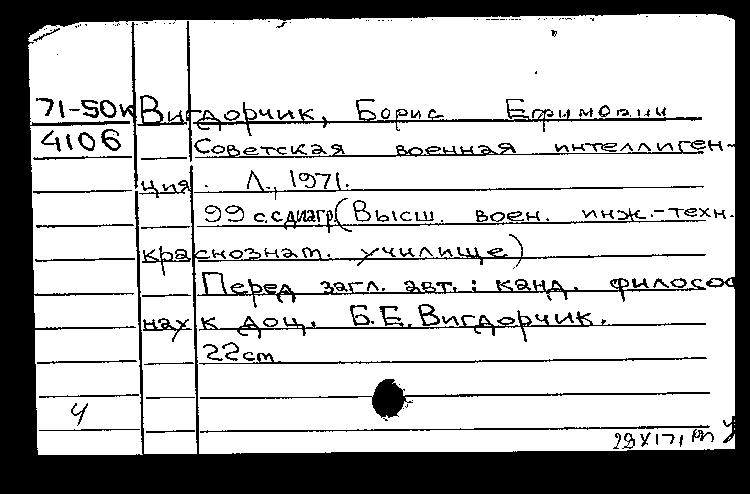 71-50к Вигдорчик, Борис Ефимович
4106 Советская военная интеллиген-
ция. Л., 1971.
99 с. с диагр (Высш. воен. инж.-техн.
краснознам. училище)
Перед загл. авт.: канд. философ
наук доц. Б.Е. Вигдорчик.
22 см.
4